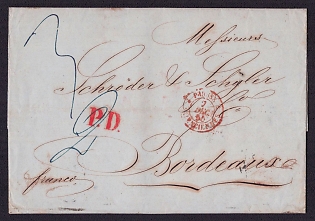 Messieurs
Schröder & Schÿler
& Co
P.D.
7
Bordeaux
franco